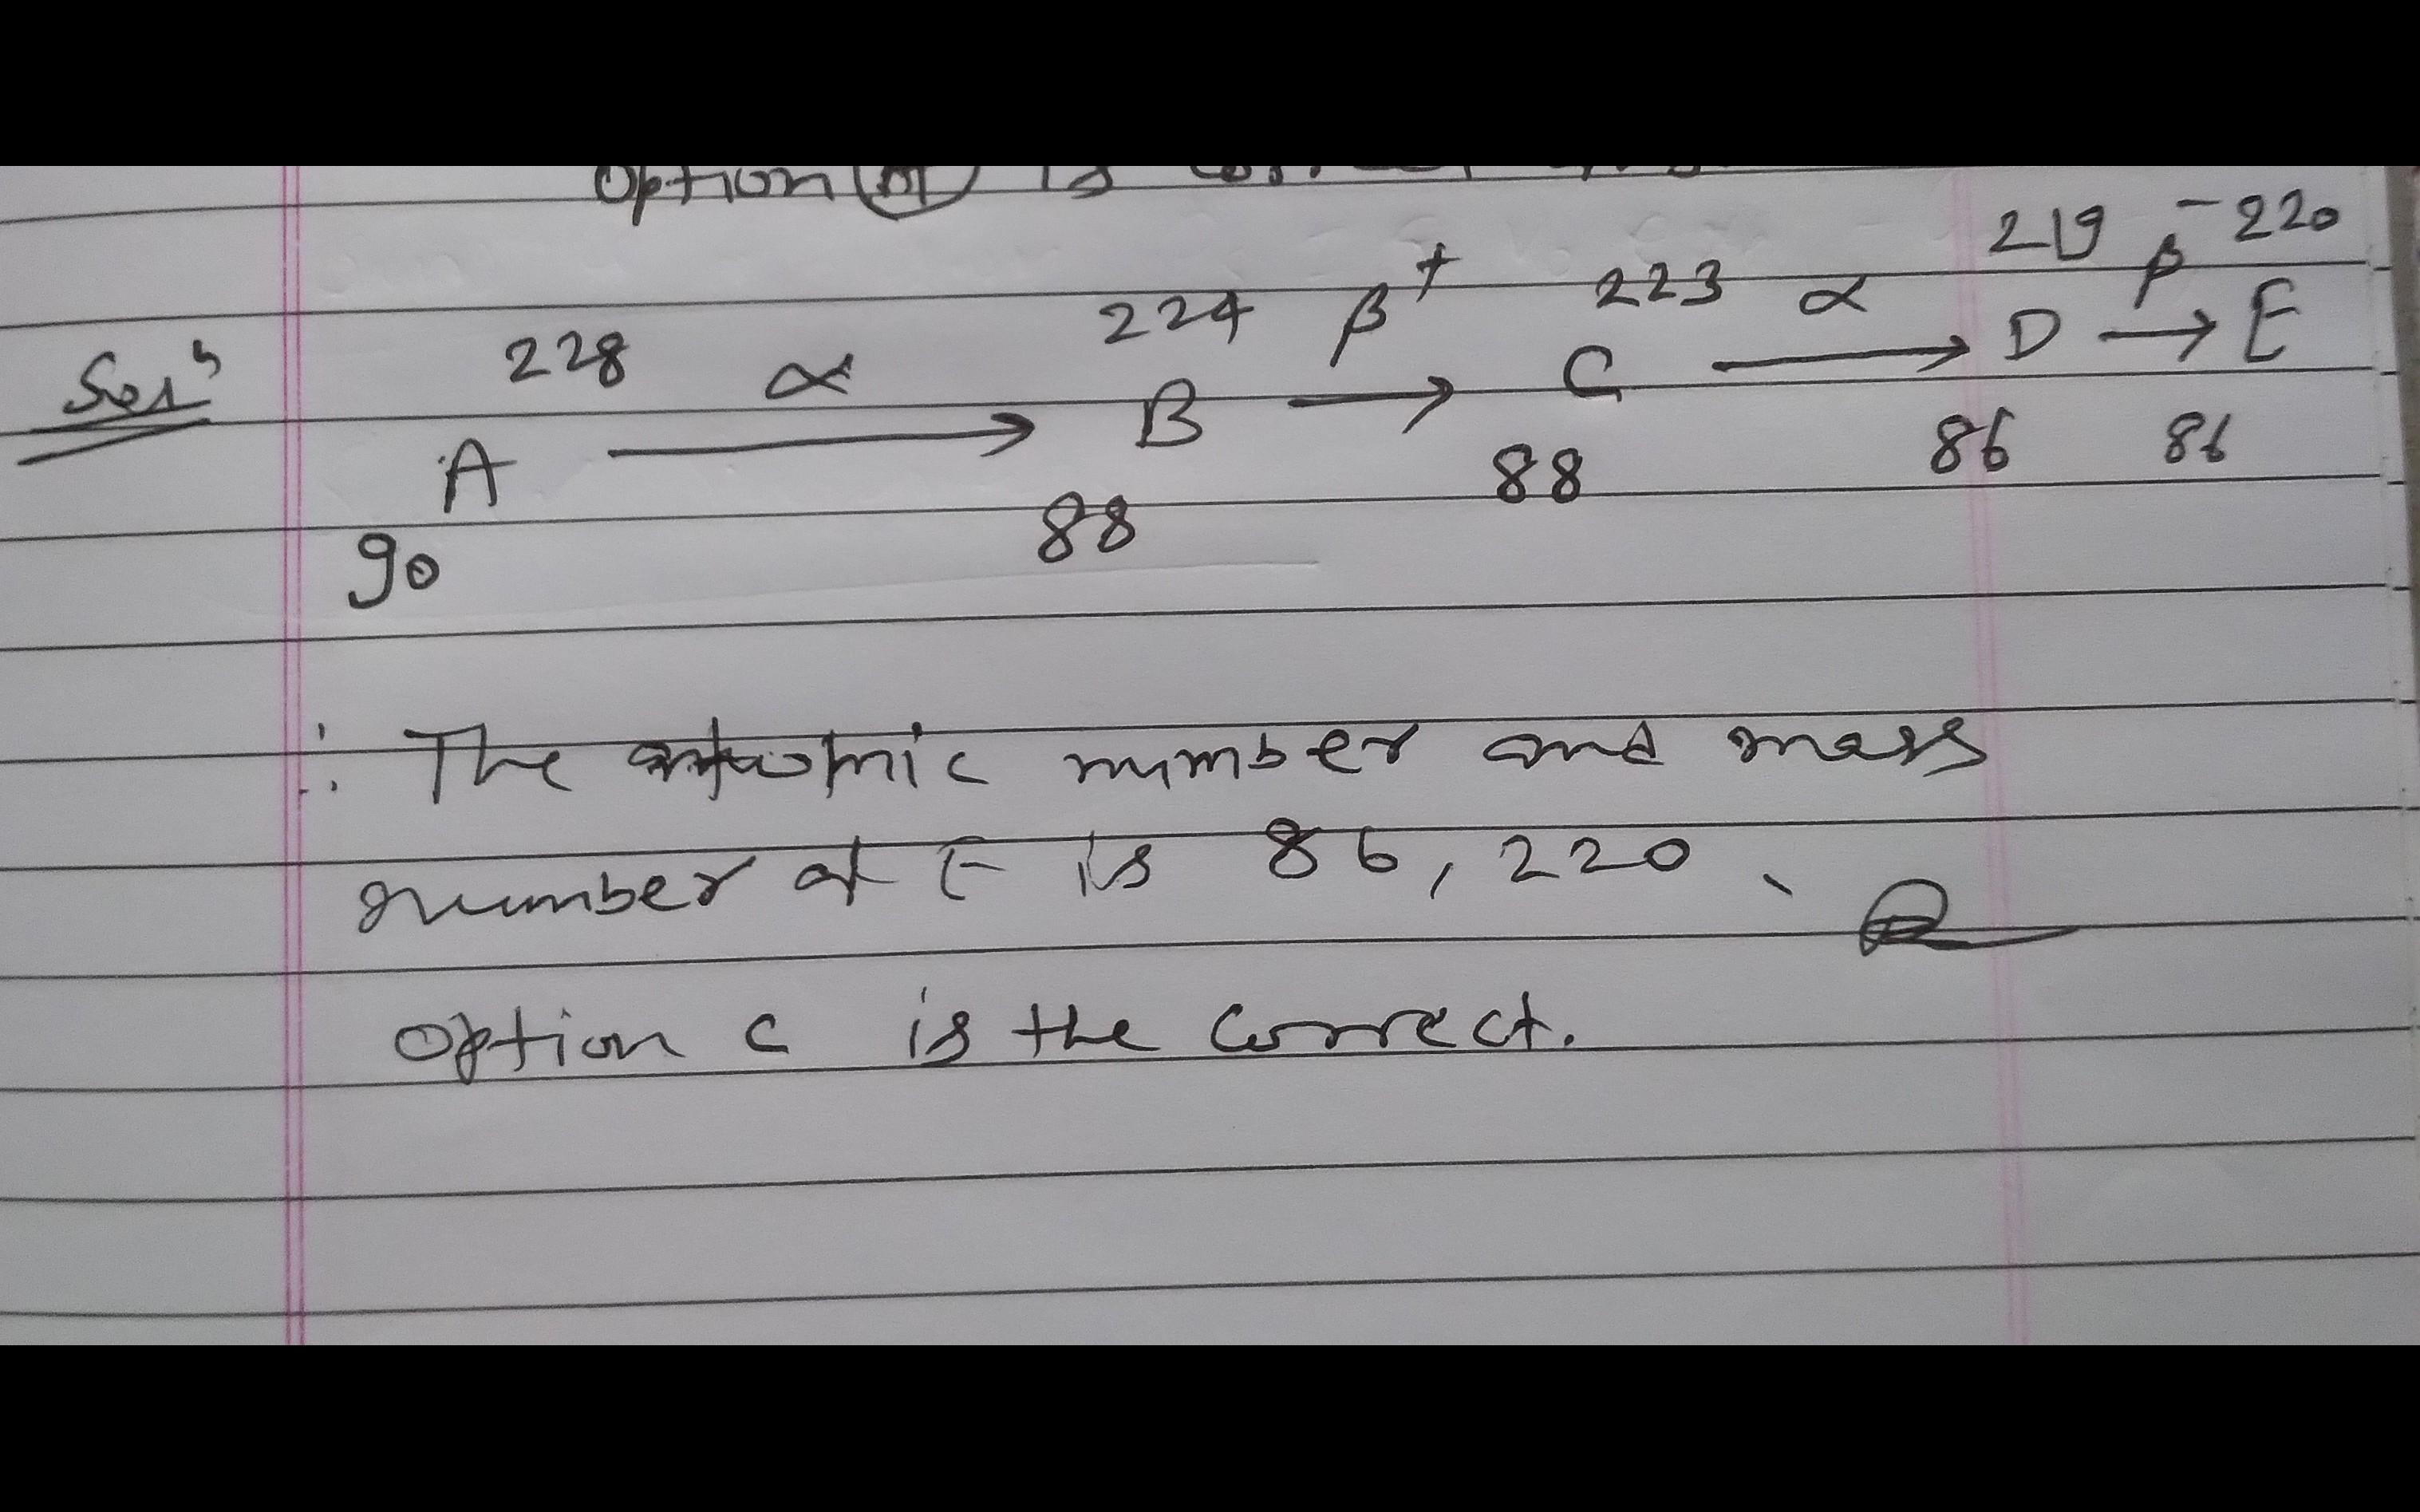 Option is
Solⁿ 228 A 90 α → 224 B 88 β⁺ → 223 C 88 α → 219 D 86 β⁻ → 220 E 86
∴ The atomic number and mass
number of E is 86, 220.
option c is the correct.